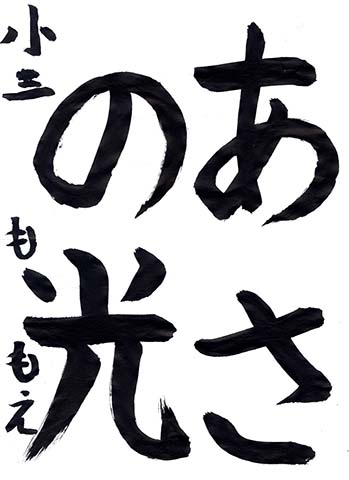 あさ
の光
小三 も もえ